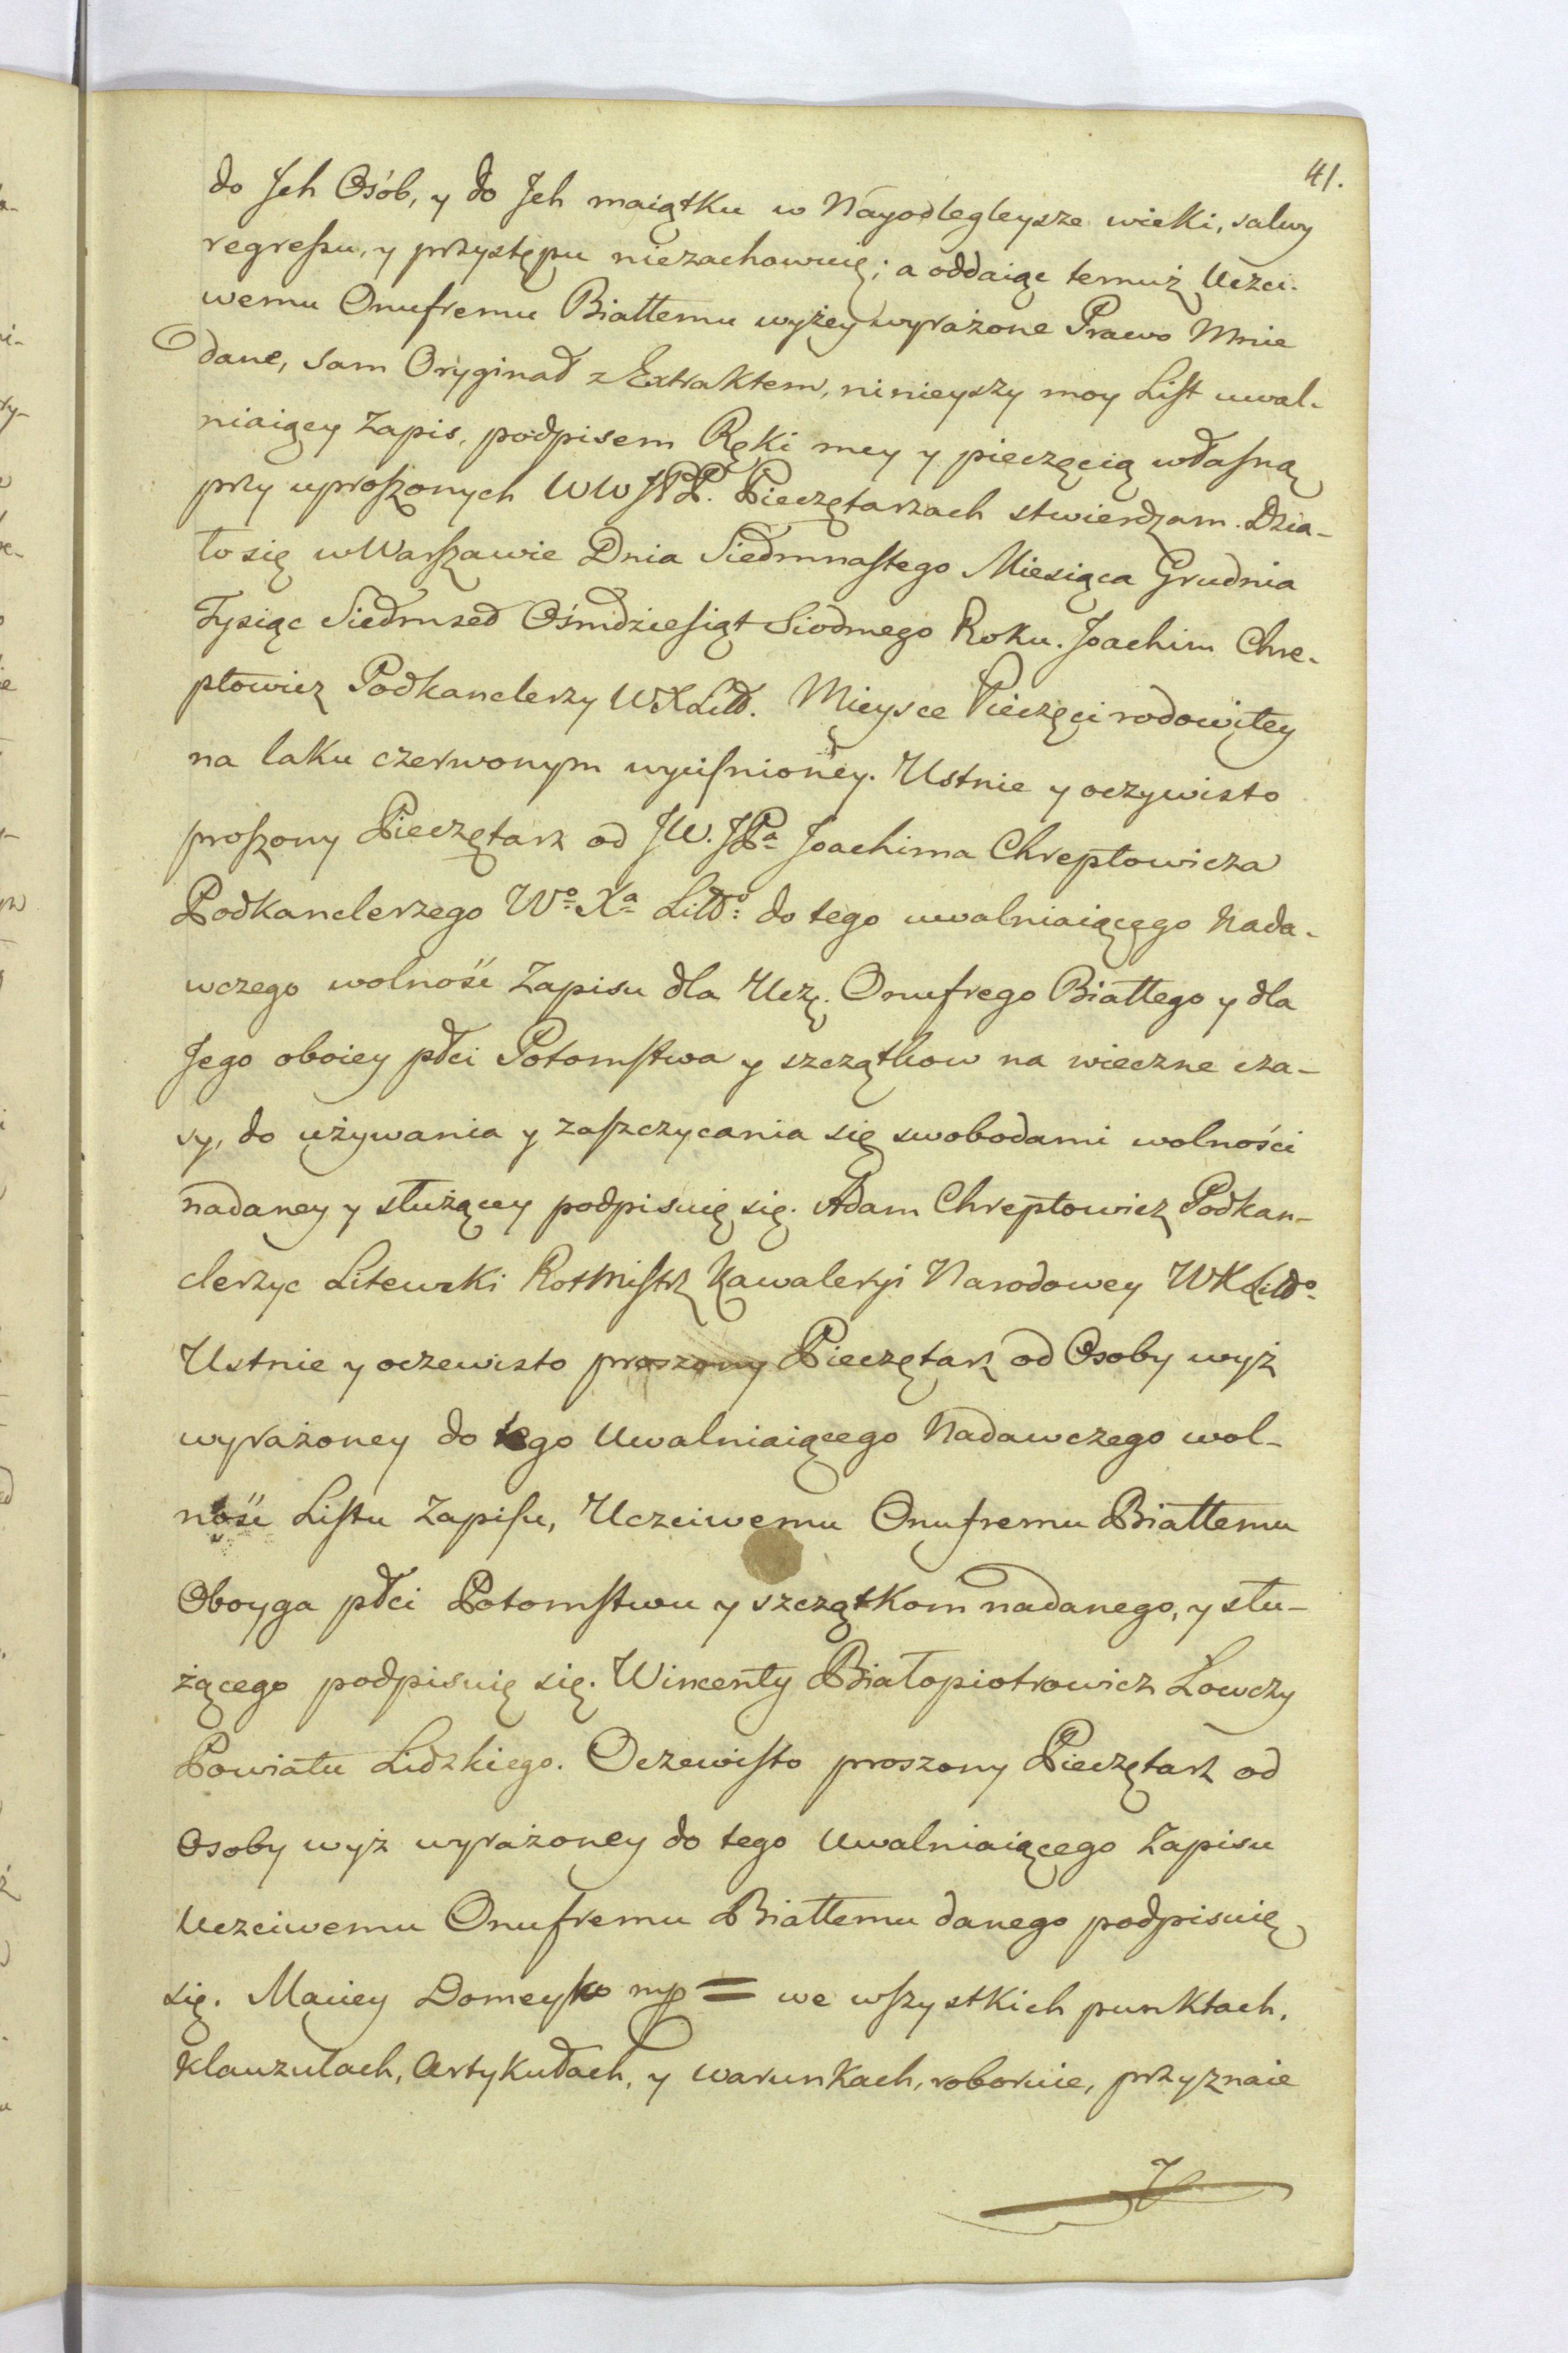 41.
do Jch Osób, y do Jch maiątku w Nayodlegleysze wieki, salwy
regreſsu, y przystępu niezachowuię; a oddaiąc temuż Uczci-
wemu Onufremu Białłemu wyżey wyrażone Prawo Mnie
dane, sam Oryginał z Extraktem, ninieyszy moy Liſt uwal-
niaiący Zapis, podpisem Ręki mey y pieczęcią właſną
przy uproſzonych WW JPP. Pieczętarzach stwierdzam. Dzia-
ło się w Warſzawie Dnia Siedmnaſtego Miesiąca Grudnia
Tysiąc Siedmsed Ośmdzieſiąt Siodmego Roku. Joachim Chre-
ptowicz Podkanclerzy WXLitt. Mieysce Pieczęci rodowitey
na laku czerwonym wyciſnioney. Ustnie y oczywisto
proſzony Pieczętarz od JW. JPa Joachima Chreptowicza
Podkanclerzego Wo Xa Litto: do tego uwalniaiącego Nada-
wczego wolność Zapisu dla Ucz. Onufrego Białłego y dla
Jego oboiey płci Potomſtwa y szczątkow na wieczne cza-
sy, do używania y zaſzczycania się swobodami wolności
nadaney y służącey podpisuię się. Adam Chreptowicz Podkan-
clerzyc Litewski Rotmiſtrz Kawaleryi Narodowey WKLitto
Ustnie y oczewisto proszony Pieczętarz od Osoby wyż
wyrażoney do tego Uwalniaiącego Nadawczego wol-
ność Liſtu Zapiſu, Uczciwemu Onufremu Białłemu
Oboyga płci Potomſtwu y szczątkom nadanego, y słu-
żącego podpisuię się. Wincenty Białopiotrowicz Łowczy
Powiatu Lidzkiego. Oczewiſto proszony Pieczętarz od
Osoby wyż wyrażoney do tego Uwalniaiącego Zapisu
Uczciwemu Onufremu Białłemu danego podpisuię
się. Maciey Domeyko mp = we wſzystkich punktach,
klauzulach, Artykułach, y warunkach, roboruie, przyznaie